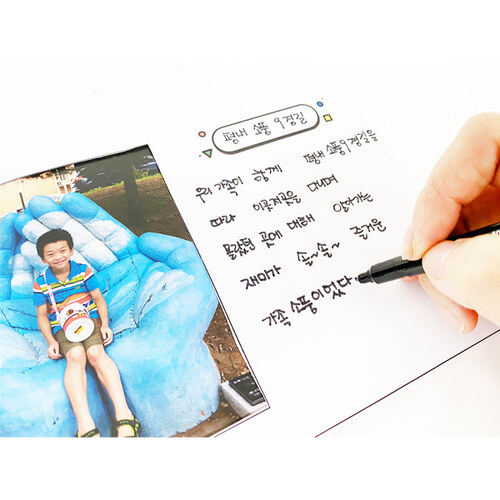 평내 소풍 9경길
우리 가족이 함께 평내 소풍9경길을
따라 이곳저곳을 다니며
몰랐던 곳에 대해 알아가는
재미가 솔~솔~ 즐거운
가족 소풍이었다.